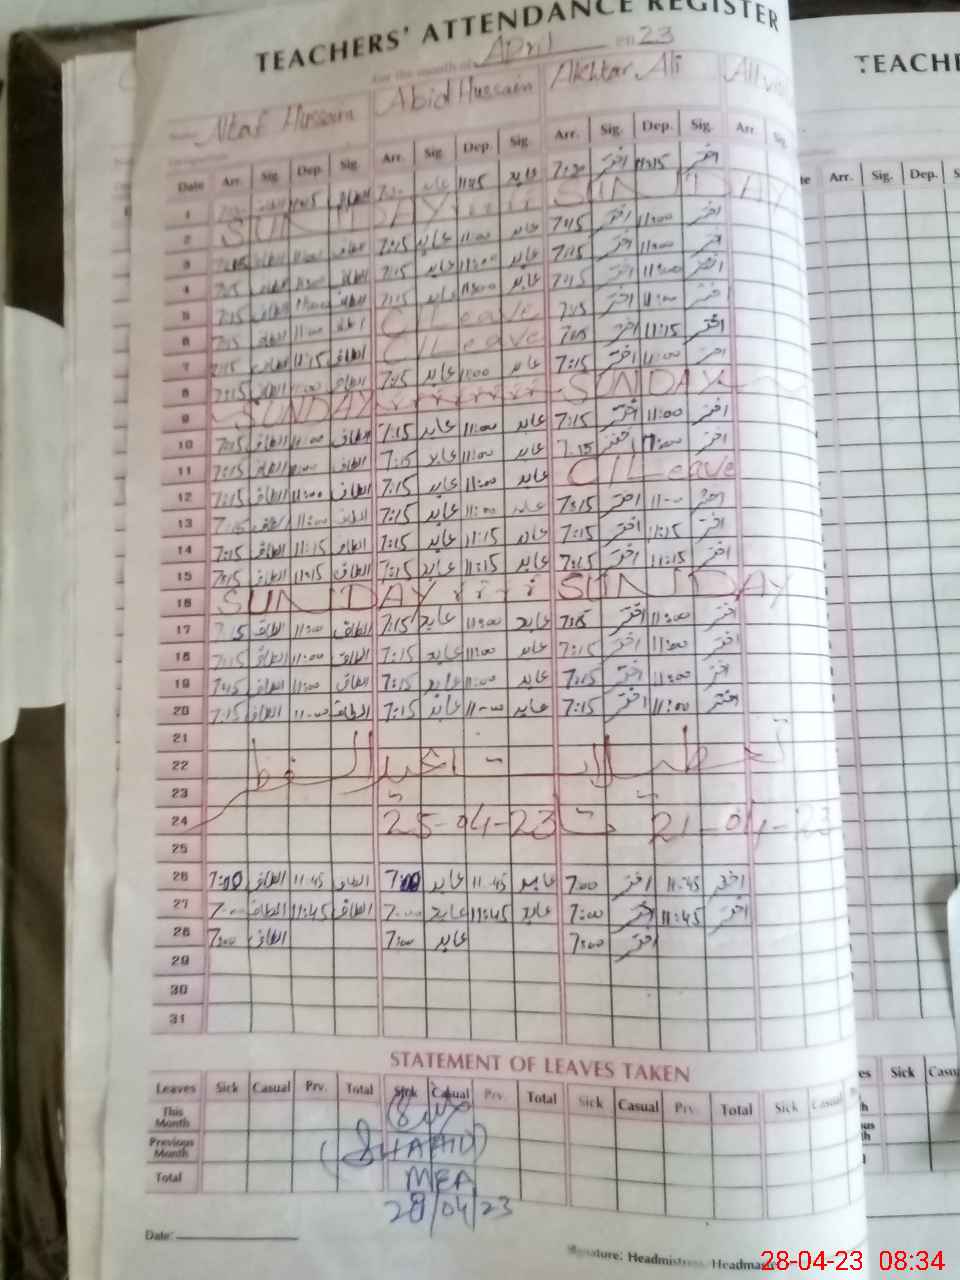 TEACHERS' ATTENDANCE REGISTER
For the month of April 23
Name Altaf Hussain Abid Hussain Akhtar Ali
Date Arr. Sig. Dep. Sig. Arr. Sig. Dep. Sig. Arr. Sig. Dep. Sig. Arr. Sig.
1 11:45 عابد 7:20 اختر 11:15 اختر
2 SUNDAY SUNDAY
3 7:15 عابد 11:00 عابد 7:15 اختر 11:00 اختر
4 7:15 عابد 11:00 عابد 7:15 اختر 11:00 اختر
5 7:15 11:00 عابد 7:15 اختر 11:00 اختر
6 7:15 الطاف 11:00 C/Leave 7:15 اختر 11:00 اختر
7 7:15 الطاف 11:15 الطاف C/Leave 7:15 اختر 11:15 اختر
8 7:15 الطاف 11:00 الطاف 7:15 عابد 11:00 عابد 7:15 اختر 11:00 اختر
9 SUNDAY SUNDAY
10 7:15 الطاف 11:00 الطاف 7:15 عابد 11:00 عابد 7:15 اختر 11:00 اختر
11 7:15 الطاف 11:00 الطاف 7:15 عابد 11:00 عابد 7:15 اختر 11:00 اختر
12 7:15 الطاف 11:00 الطاف 7:15 عابد 11:00 عابد C/Leave
13 7:15 الطاف 11:00 الطاف 7:15 عابد 11:00 عابد 7:15 اختر 11:00 اختر
14 7:15 الطاف 11:15 الطاف 7:15 عابد 11:15 عابد 7:15 اختر 11:15 اختر
15 7:15 الطاف 11:15 الطاف 7:15 عابد 11:15 عابد 7:15 اختر 11:15 اختر
16 SUNDAY SUNDAY
17 7:15 الطاف 11:00 الطاف 7:15 عابد 11:00 عابد 7:15 اختر 11:00 اختر
18 7:15 الطاف 11:00 الطاف 7:15 عابد 11:00 عابد 7:15 اختر 11:00 اختر
19 7:15 الطاف 11:00 الطاف 7:15 عابد 11:00 عابد 7:15 اختر 11:00 اختر
20 7:15 الطاف 11:00 الطاف 7:15 عابد 11:00 عابد 7:15 اختر 11:00 اختر
21
22 تعطیلات عیدالفطر
23
24 25-04-23 تا 21-04-23
25
26 7:00 الطاف 11:45 الطاف 7:00 عابد 11:45 عابد 7:00 اختر 11:45 اختر
27 7:00 الطاف 11:45 الطاف 7:00 عابد 11:45 عابد 7:00 اختر 11:45 اختر
28 7:00 الطاف 7:00 عابد 7:00 اختر
29
30
31
STATEMENT OF LEAVES TAKEN
Leaves Sick Casual Prv. Total Sick Casual Prv. Total Sick Casual Prv. Total Sick Casual
This Month
Previous Month
Total
(SHAHID)
MEA
28/04/23
Date:
Signature: Headmistress/Headmaster
TEACHE
Arr. Sig. Dep. S
Sick Casu
28-04-23 08:34